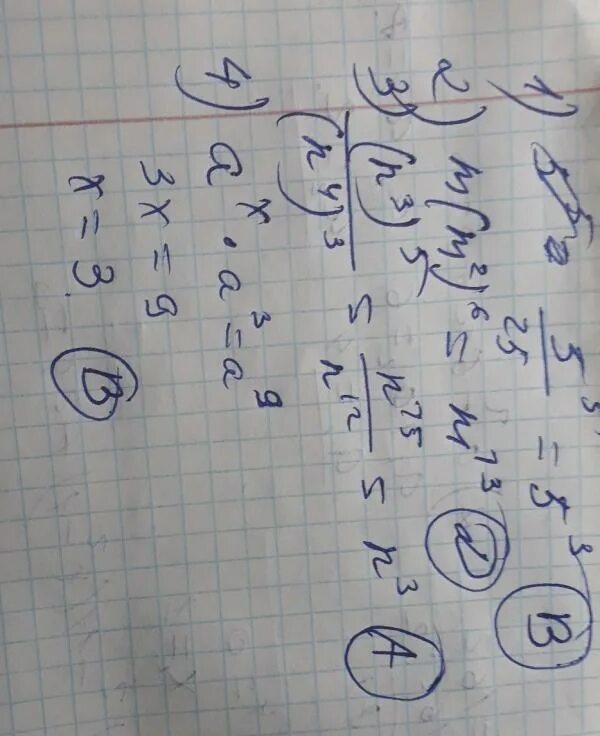 1) 5⁵/25 = 5³ (B)
2) m(m²)⁶ = m¹³
3) (n³)⁵/(n⁴)³ = n¹⁵/n¹² = n³ (A)
4) aˣ · a³ = a⁹
3x = 9
x = 3 (B)